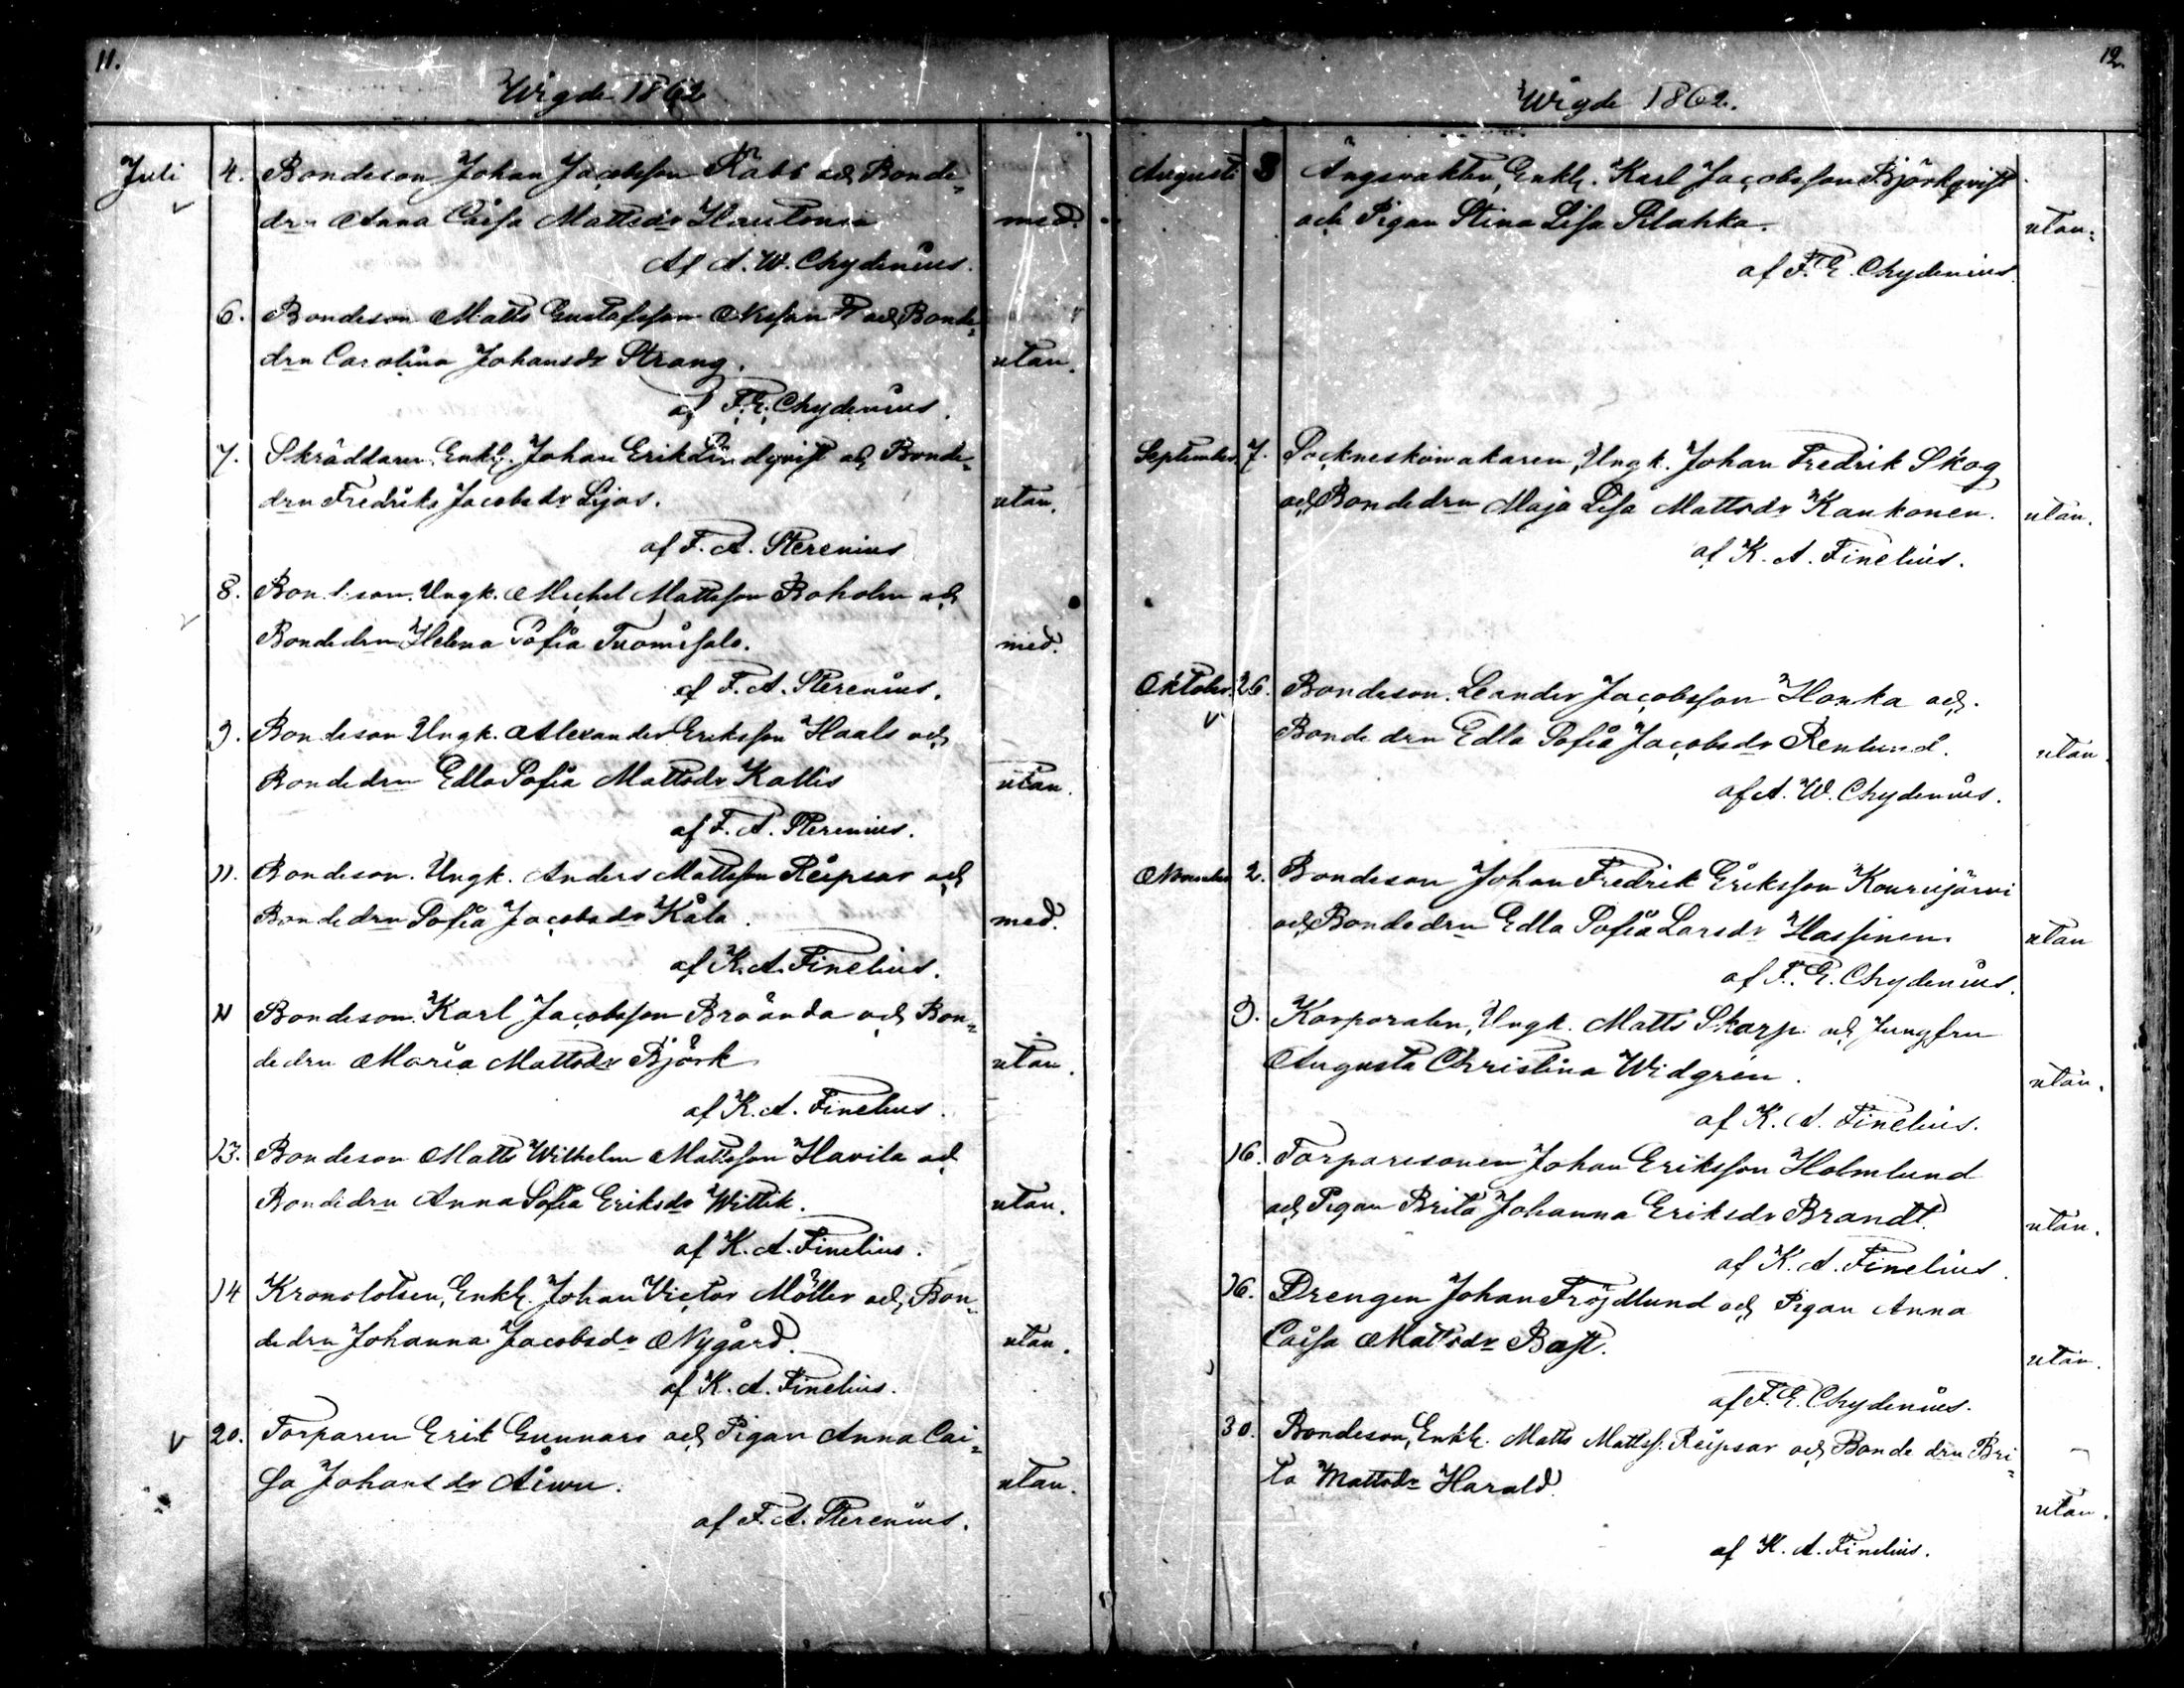 11.
Wigde 1862
Juli 4. Bondeson Johan Jacobsson Rabb och Bonde-
drn Anna Caisa Mattsdr Hautonen med.
Af A. W. Chydenius.
6. Bondeson Matts Gustafsson och Bonde-
drn Carolina Johansdr Strang. utan.
af F. E. Chydenius.
7. Skräddaren, Enkl. Johan Erik Lindqvist och Bonde-
drn Fredrika Jacobsdr Lijas. utan.
af F. A. Sterenius
8. Bondeson, Ungk. Michel Mattsson Boholm och
Bondedrn Helena Sofia Tuomisalo. med.
af F. A. Sterenius.
9. Bondeson Ungk. Alexander Eriksson Haals och
Bondedrn Edla Sofia Mattsdr Kallis utan.
af F. A. Sterenius.
11. Bondeson. Ungk. Anders Mattsson Reipsar och
Bondedrn Sofia Jacobsdr Kåla. med.
af K. A. Finelius.
11 Bondeson. Karl Jacobsson Braända och Bon-
dedrn Maria Mattsdr Björk utan.
af K. A. Finelius.
13. Bondeson Matts Wilhelm Mattsson Havila och
Bondedrn Anna Sofia Eriksdr Wittik. utan.
af K. A. Finelius.
14 Kronolotsen, Enkl. Johan Victor Möller och Bon-
dedrn Johanna Jacobsdr Nygård. utan.
af K. A. Finelius.
20. Torparen Erik Gunnars och Pigan Anna Cai-
sa Johansdr utan.
af F. A. Sterenius.
12.
Wigde 1862.
Augusti 3 Ängsvakten, Enkl. Karl Jacobsson Björkqvist
och Pigan Stina Lisa Pilahka. utan.
af F. E. Chydenius
September 7. Sockneskomakaren, Ungk. Johan Fredrik Skog
och Bondedrn Maja Lisa Mattsdr Kankonen. utan.
af K. A. Finelius.
Oktober 26. Bondeson. Leander Jacobsson Honka och
Bondedrn Edla Sofia Jacobsdr Renlund. utan.
af A. W. Chydenius.
November 2. Bondeson Johan Fredrik Eriksson Kourujärvi
och Bondedrn Edla Sofia Larsdr Hassinen utan
af F. E. Chydenius.
9. Korporalen, Ungk. Matts Skarp och Jungfru
Augusta Christina Widgren. utan.
af K. A. Finelius.
16. Torparesonen Johan Eriksson Holmlund
och Pigan Brita Johanna Eriksdr Brandt. utan.
af K. A. Finelius.
16. Drengen Johan Fröjdlund och Pigan Anna
Caisa Mattsdr Bast. utan.
af F. E. Chydenius.
30. Bondeson, Enkl. Matts Mattss. Reipsar och Bondedrn Bri-
ta Mattsdr Harald. utan.
af K. A. Finelius.